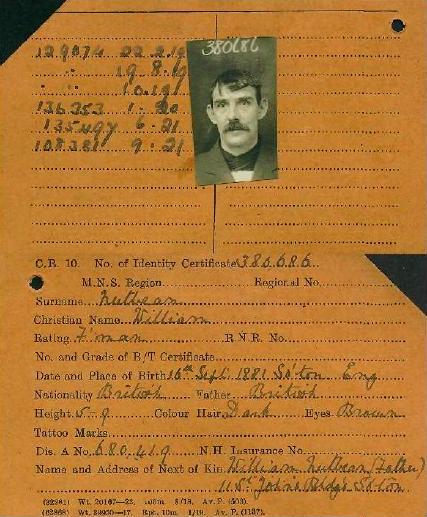 380686
129074 22.2.19
" 19.8.19
" " 10.19
136353 1.20
135497 6.21
108381 9.21
C.R. 10. No. of Identity Certificate 380686
M.N.S. Region Regional No.
Surname Nutbean
Christian Name William
Rating F'man R.N.R. No.
No. and Grade of B/T Certificate
Date and Place of Birth 16th Sept. 1881 So'ton Eng
Nationality British Father British
Height 5-9 Colour Hair Dark Eyes Brown
Tattoo Marks
Dis. A No. 680419 N.H. Insurance No.
Name and Address of Next of Kin William Nutbean (Father)
11 St. John's Bldgs So'ton
Wt. 20167—22. 8/18. Av. P. (503).
Rpt. 10m. 1/19. Av. P. (1137).